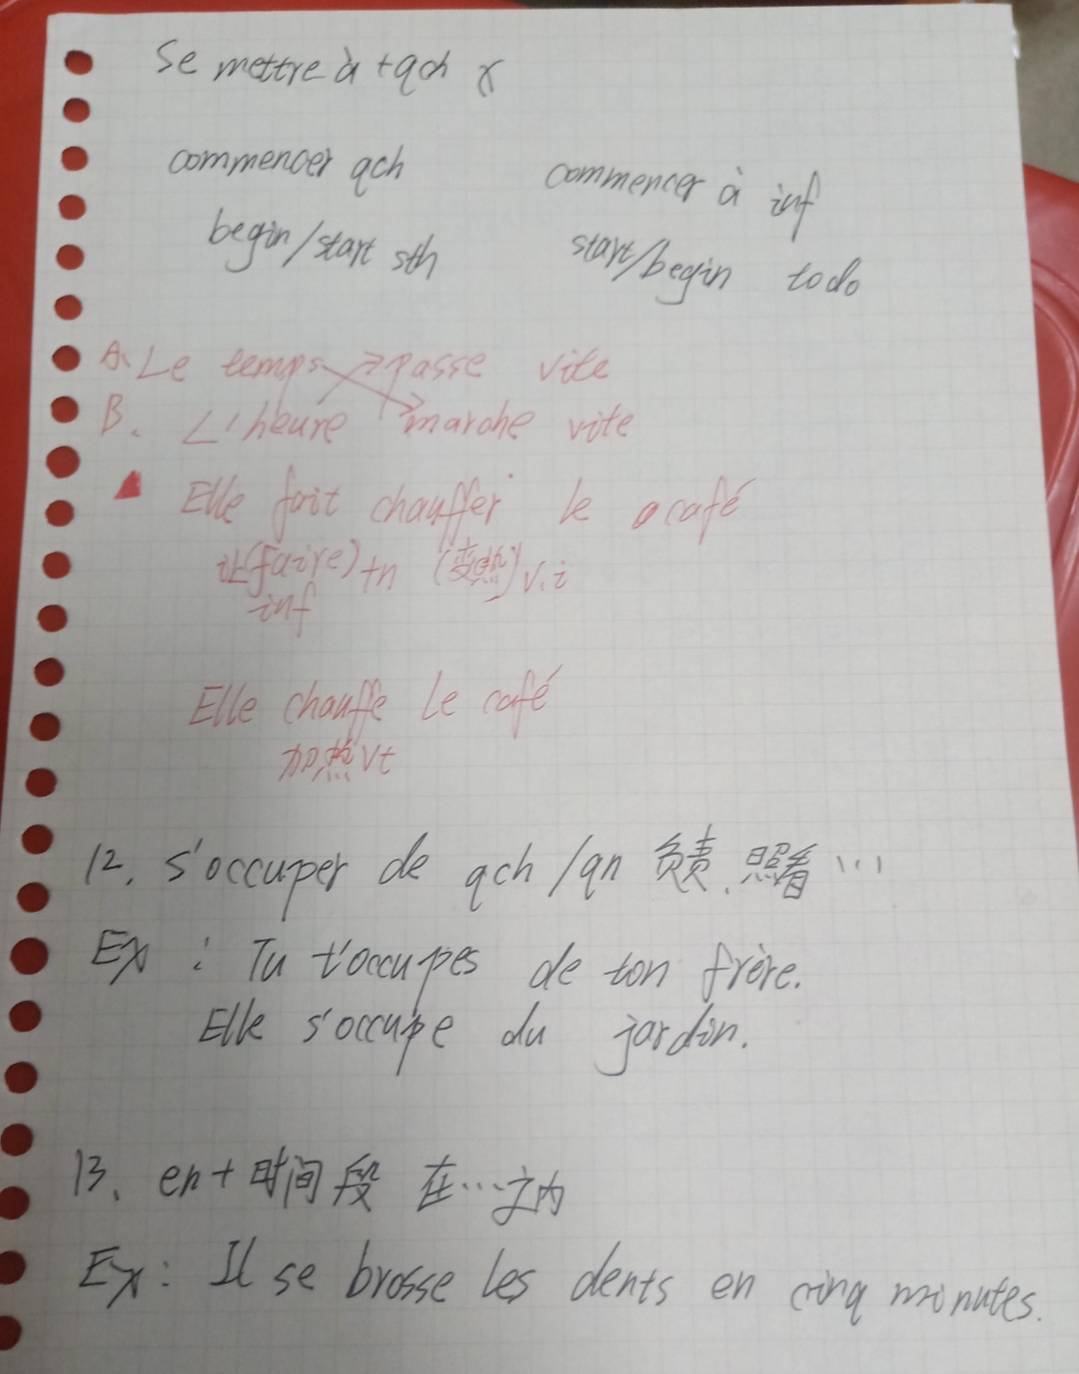 Se mettre à +qch x
commencer qch commencer à inf
begin/start sth start/begin todo
A. Le temps passe vite
B. L'heure marche vite
Elle fait chauffer le café
让(faire)+n (变热)v.i
inf
Elle chauffe Le café
加热vt
12. s'occuper de qch /qn 负责.照看…
Ex : Tu t'occupes de ton frère.
Elle s'occupe du jardin.
13. en+时间段 在…之内
Ex: Il se brosse les dents en cinq minutes.